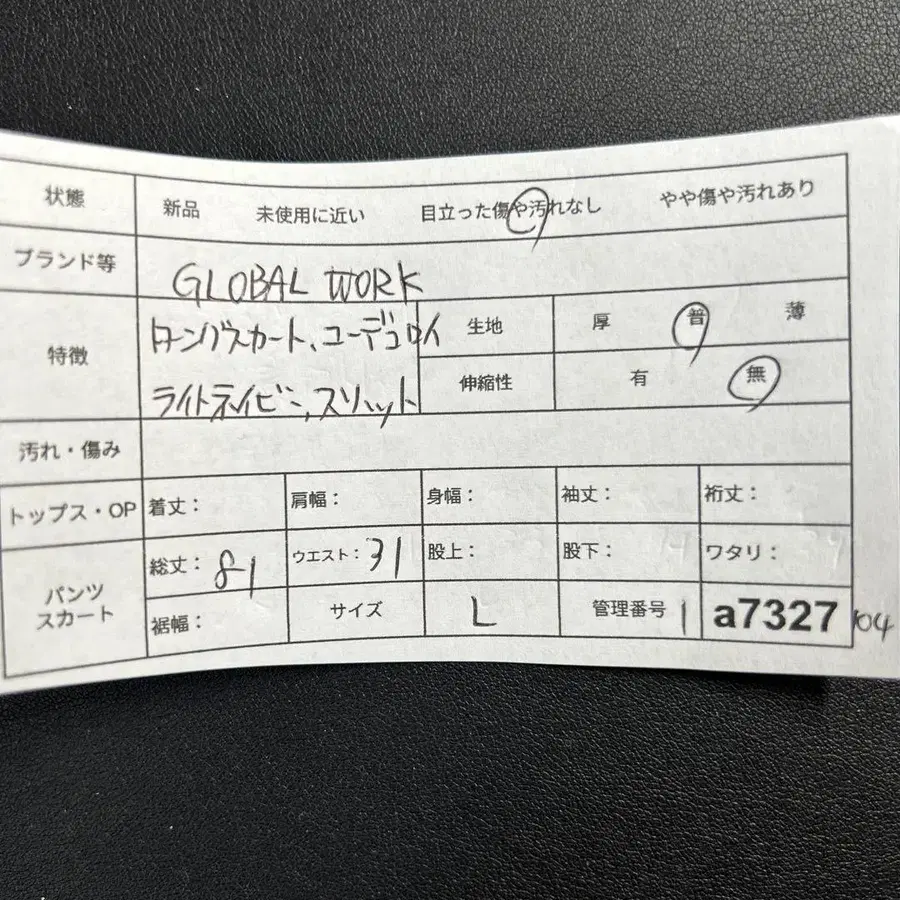 状態 新品 未使用に近い 目立った傷や汚れなし やや傷や汚れあり
ブランド等 GLOBAL WORK
特徴 ロングスカート、コーデュロイ
ライトネイビー、スリット
生地 厚 普 薄
伸縮性 有 無
汚れ・傷み
トップス・OP 着丈： 肩幅： 身幅： 袖丈： 裄丈：
パンツ
スカート
総丈：81 ウエスト：31 股上： 股下： ワタリ：
裾幅： サイズ L 管理番号 1 a7327 104